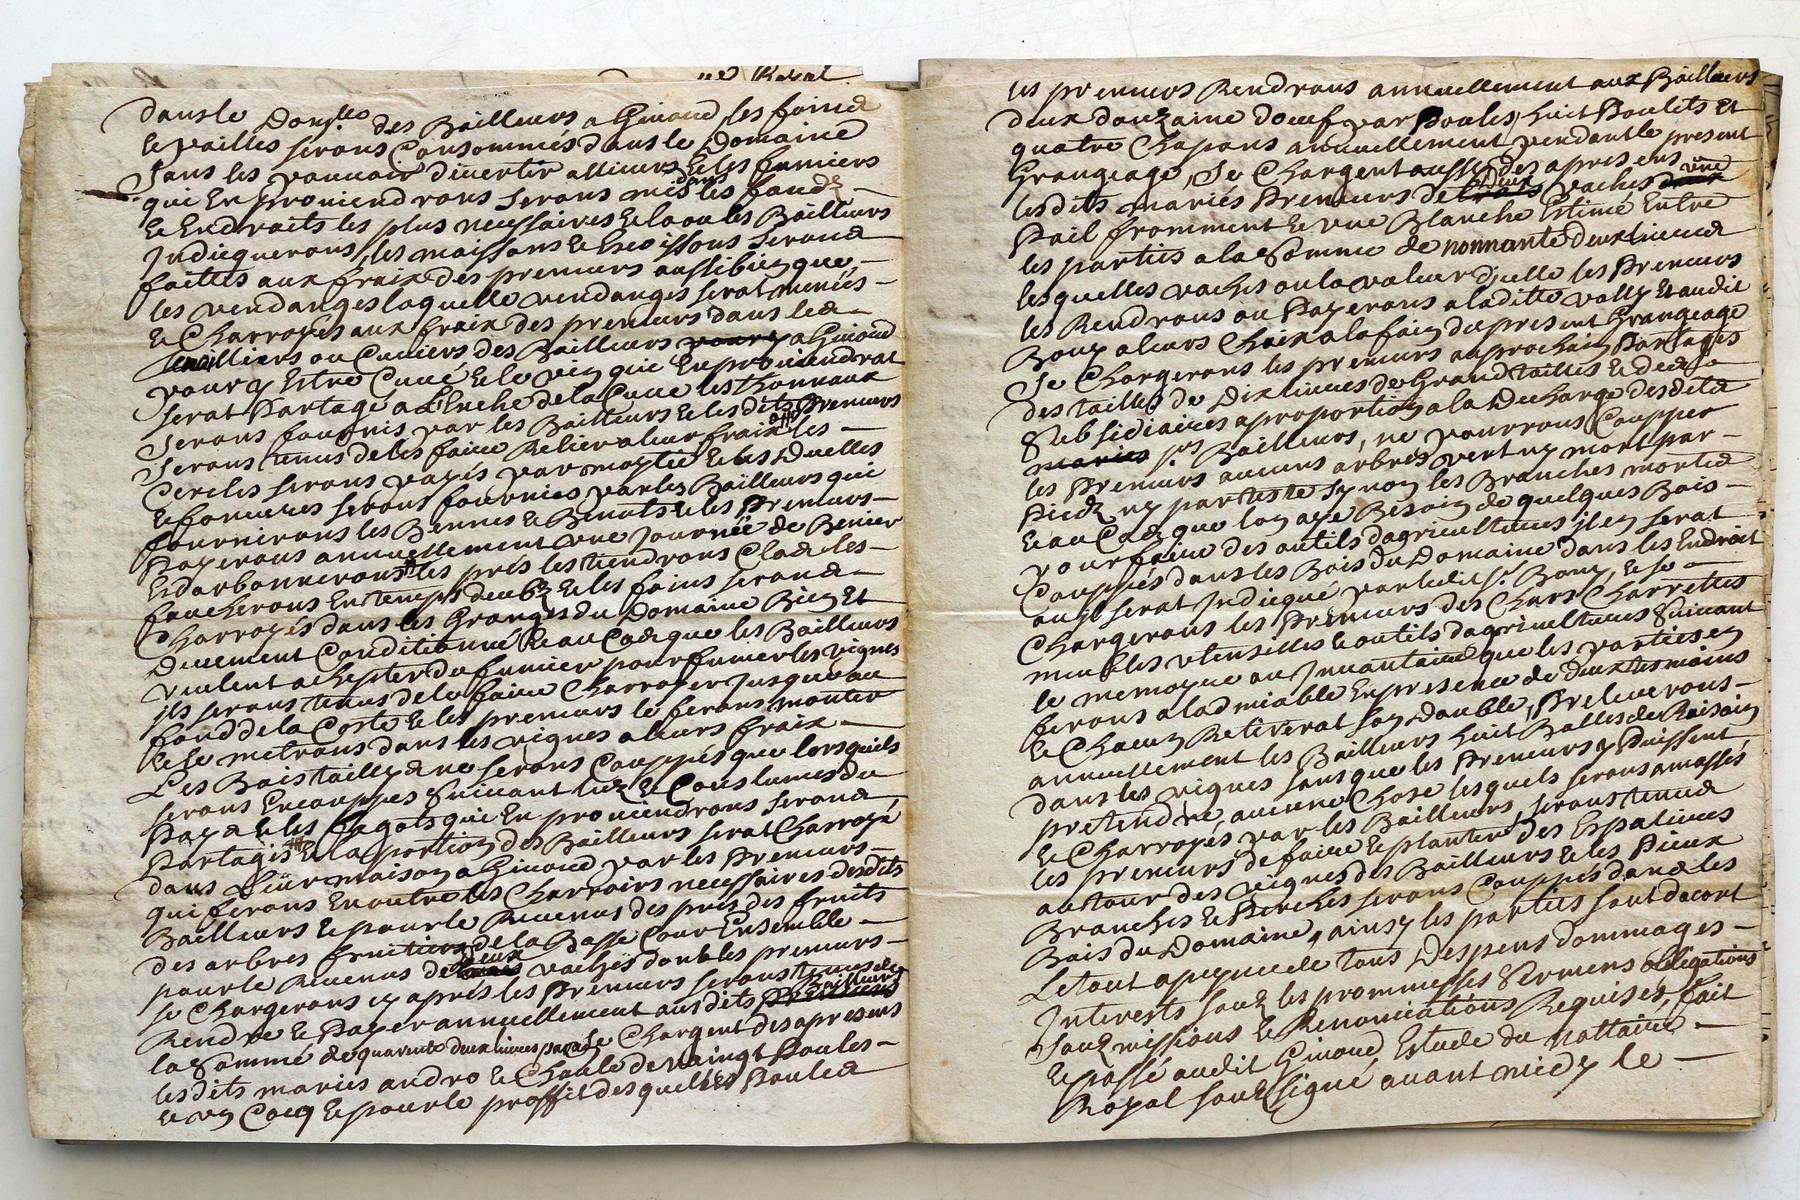 Royal
dans le des Bailleurs a Givoud, les foins
et pailles serons Consommés dans le Domaine
Sans les pouvoir divertir allieurs, et les fumiers
qui En proviendrons serons mis dans les fondz
et Endroits les plus nécessaires et la ou les Bailleurs
Indiequerons, les moissons et serons
faittes aux fraix des preneurs aussi bien que
les vendanges laquelle vendanges serat menés
et Charroyés aux fraix des preneurs dans les
ou Cuviers des Bailleurs a Givoud
pour y Estre Cuvé et le vin qui En proviendrat
serat Partagé a L'Enche de la Cuve les thonneaux
Serons fournis par les Bailleurs et les dits Preneurs
Serons tenus de les faire Relier a leur fraix les
Cercles serons payés par moytié et les Duelles
et serons fournies par les Bailleurs qui
fournirons les Bennes et Benots et les Preneurs
Payerons annuellement une journée de Benier
les prés les tiendrons Clos les
faucherons En temps deubz et les foins serons
Charroyés dans les Granges du Domaine Bien Et
Duement Conditionné et au Cas que les Bailleurs
veulent achepter du fumier pour fumer les vignes
ils serons tenus de le faire Charroyer jusqu'au
fond de la Coste et les preneurs le ferons monter
et le metrons dans les vignes a leurs fraix
Les Bois taillys ne serons Couppés que lorsquils
serons En couppes Suivant luz et Coustumes du
Pays et les fagots qui En proviendrons serons
Partagés et la portion des Bailleurs serat Charroyé
dans Leur maison a Givoud par les Preneurs
qui ferons En outre les Charrois necessaires desdits
Bailleurs et pour le Revenus des prés des fruits
des arbres fruitiers de la Basse Cour Ensemble
pour le Revenus de deux vaches dont les preneurs
se Chargerons cy apres les Preneurs serons tenus de
Rendre et Payer annuellement ausdits Bailleurs
la Somme de quarente deux livres se Chargent des apresens
lesdits mariés andro et Chaule de vaingt Poules
et un Cocq et pour le proffit desquelles Poules
les preneurs Rendrons annuellement aux Bailleurs
deux douzaine doeuf par Poules, huit Poulets Et
quatre Chapons annuellement pendant le present
Grangeage, Se Chargent aussi des apresens
lesdits mariés Preneurs de deux vaches une
Poil fromment et une Blanche Estimé Entre
les parties a la Somme de nonnante deux livres
lesquelles vaches ou la valeur d'icelle les Preneurs
les Rendrons ou Payerons a laditte vally Et audit
Bouy a leurs Choix a la fain du present Grangeage
Se Chargerons les preneurs au prochain Partages
des tailles de Dix livres de Grand tailles et des
Subsidiaires a proportion a la Decharge desdits
Bailleurs, ne pourrons Coupper
les Preneurs aucuns arbres vert ny mort par
Piedz ny par teste synon les Branches mortes
et au Cas que lon aye Besoin de quelques Bois
pour faire des outils dagricultures il en serat
Couppés dans les Bois du Domaine dans les Endroit
ou il serat Indiqué par ledit sr Bouy, et se
Chargerons les Preneurs des Chars Charrettes
meubles utensilles et outils dagricultures Suivant
le memoyre ou Inventaire que les parties en
ferons a lad miable En presence de deux tesmoins
et Chacun Retirerat son double, Preleverons
annuellement les Bailleurs huit Balles de Raisain
dans les vignes sans que les Preneurs y Puissent
pretendre aucune Chose lesquels serons amassés
et Charroyés par les Bailleurs, serons tenus
les preneurs de faire et planter des Espaliers
au tour des vignes des Bailleurs et les Pieux
Branches et Perches serons Couppés dans les
Bois du Domaine, ainsy les parties sont dacort
Le tout a peyne de tous Despens dommages
Interests souz les prommesses Sermens obligations
Souzmissions et Renonciations Requises, fait
et passé audit Givoud Estude du nottaire
Royal souzsigné avant midy le